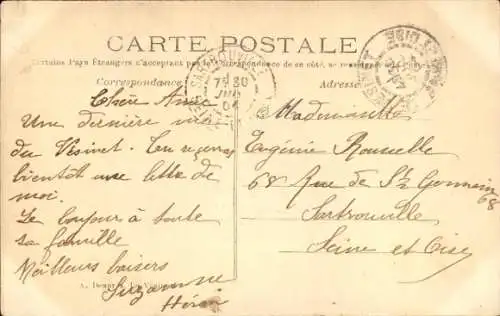 CARTE POSTALE
Certains Pays Étrangers n'acceptant pas la Correspondance de ce côté, se renseigner
Correspondance
Adresse
SARTROUVILLE
7 30
Chère Amie
Une dernière vue
du Vésinet. Tu recevras
bientôt une lettre de
moi.
Le bonjour à toute
ta famille
Meilleurs baisers
Suzanne
Mademoiselle
Eugénie Rouvelle
68 Rue de St Germain
68
Sartrouville
Seine et Oise